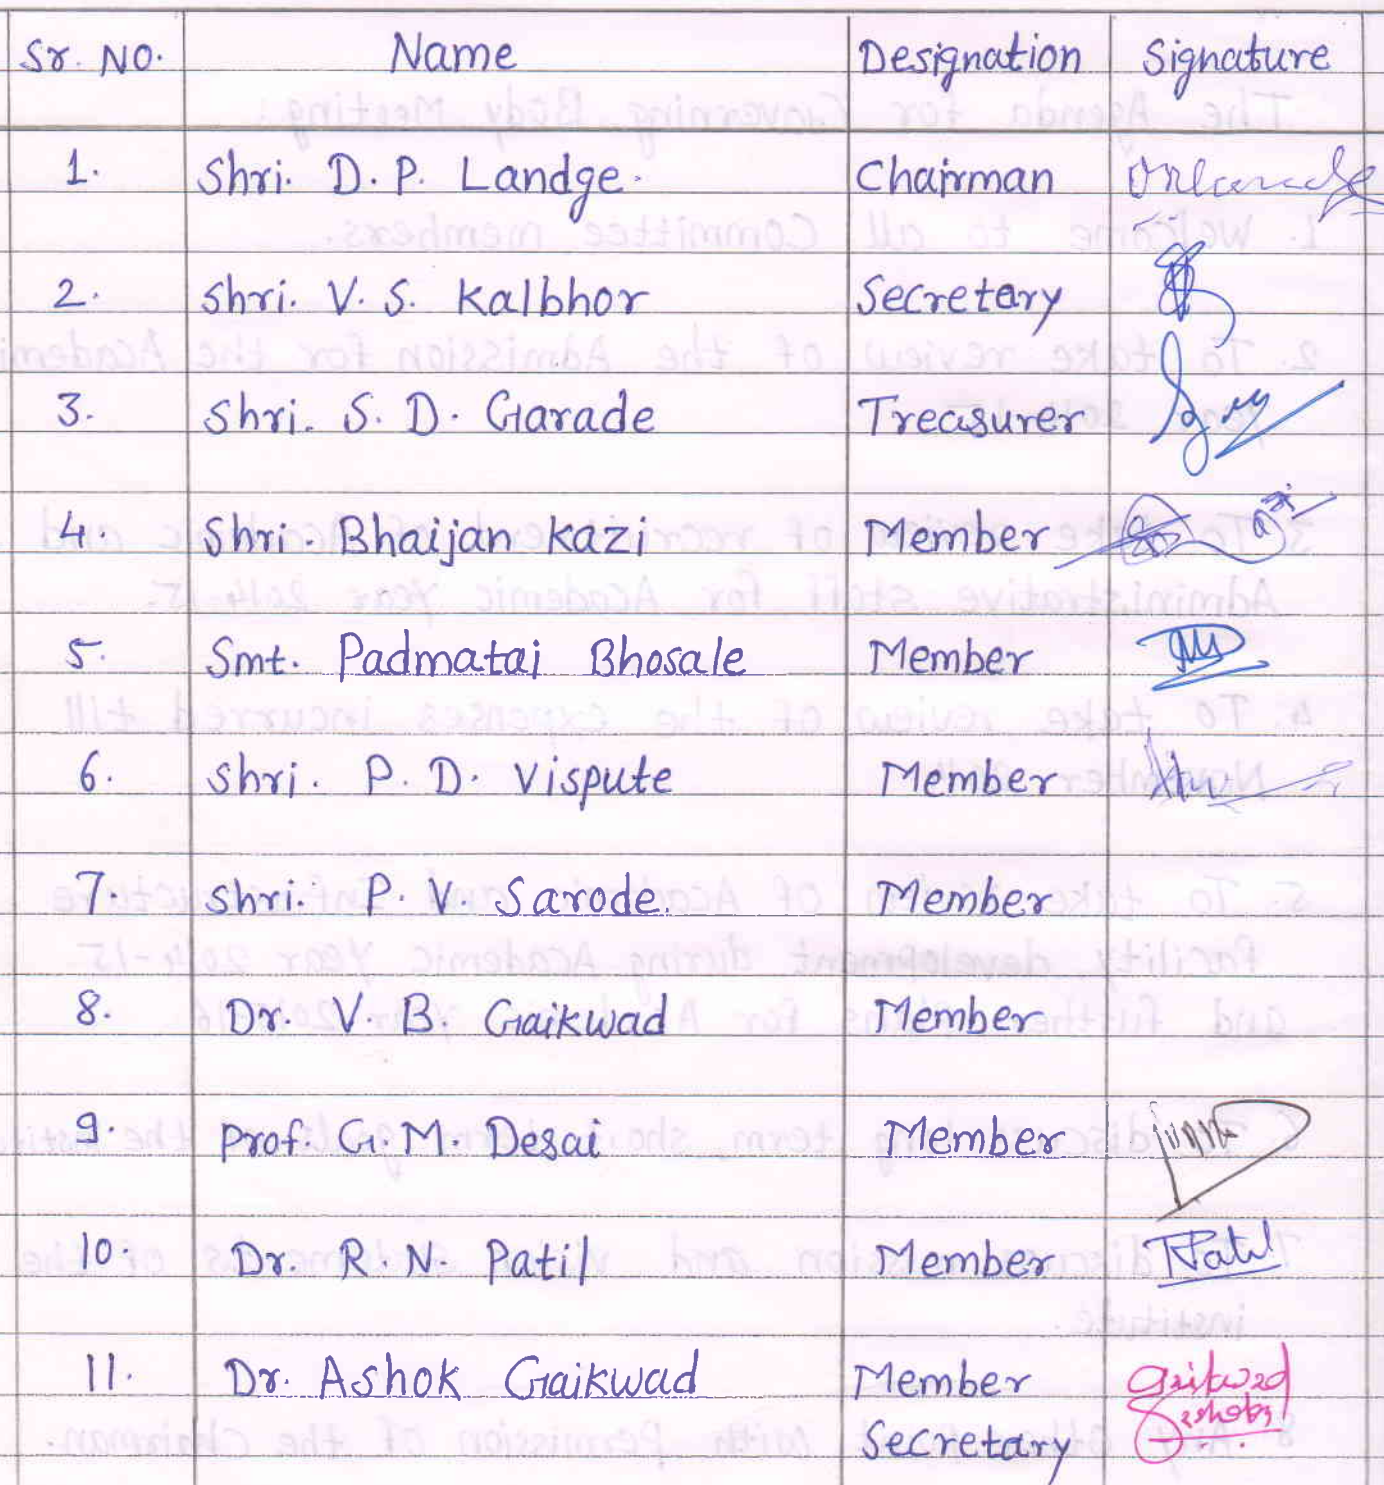 Sr. NO. Name Designation Signature
1. Shri. D. P. Landge. Chairman
2. Shri. V. S. Kalbhor Secretary
3. Shri. S. D. Garade Treasurer
4. Shri. Bhaijan Kazi Member
5. Smt. Padmatai Bhosale Member
6. Shri. P. D. Vispute Member
7. Shri. P. V. Sarode. Member
8. Dr. V. B. Gaikwad Member
9. Prof. G. M. Desai Member
10. Dr. R. N. Patil Member RPatil
11. Dr. Ashok Gaikwad Member Gaikwad
Secretary Ashok